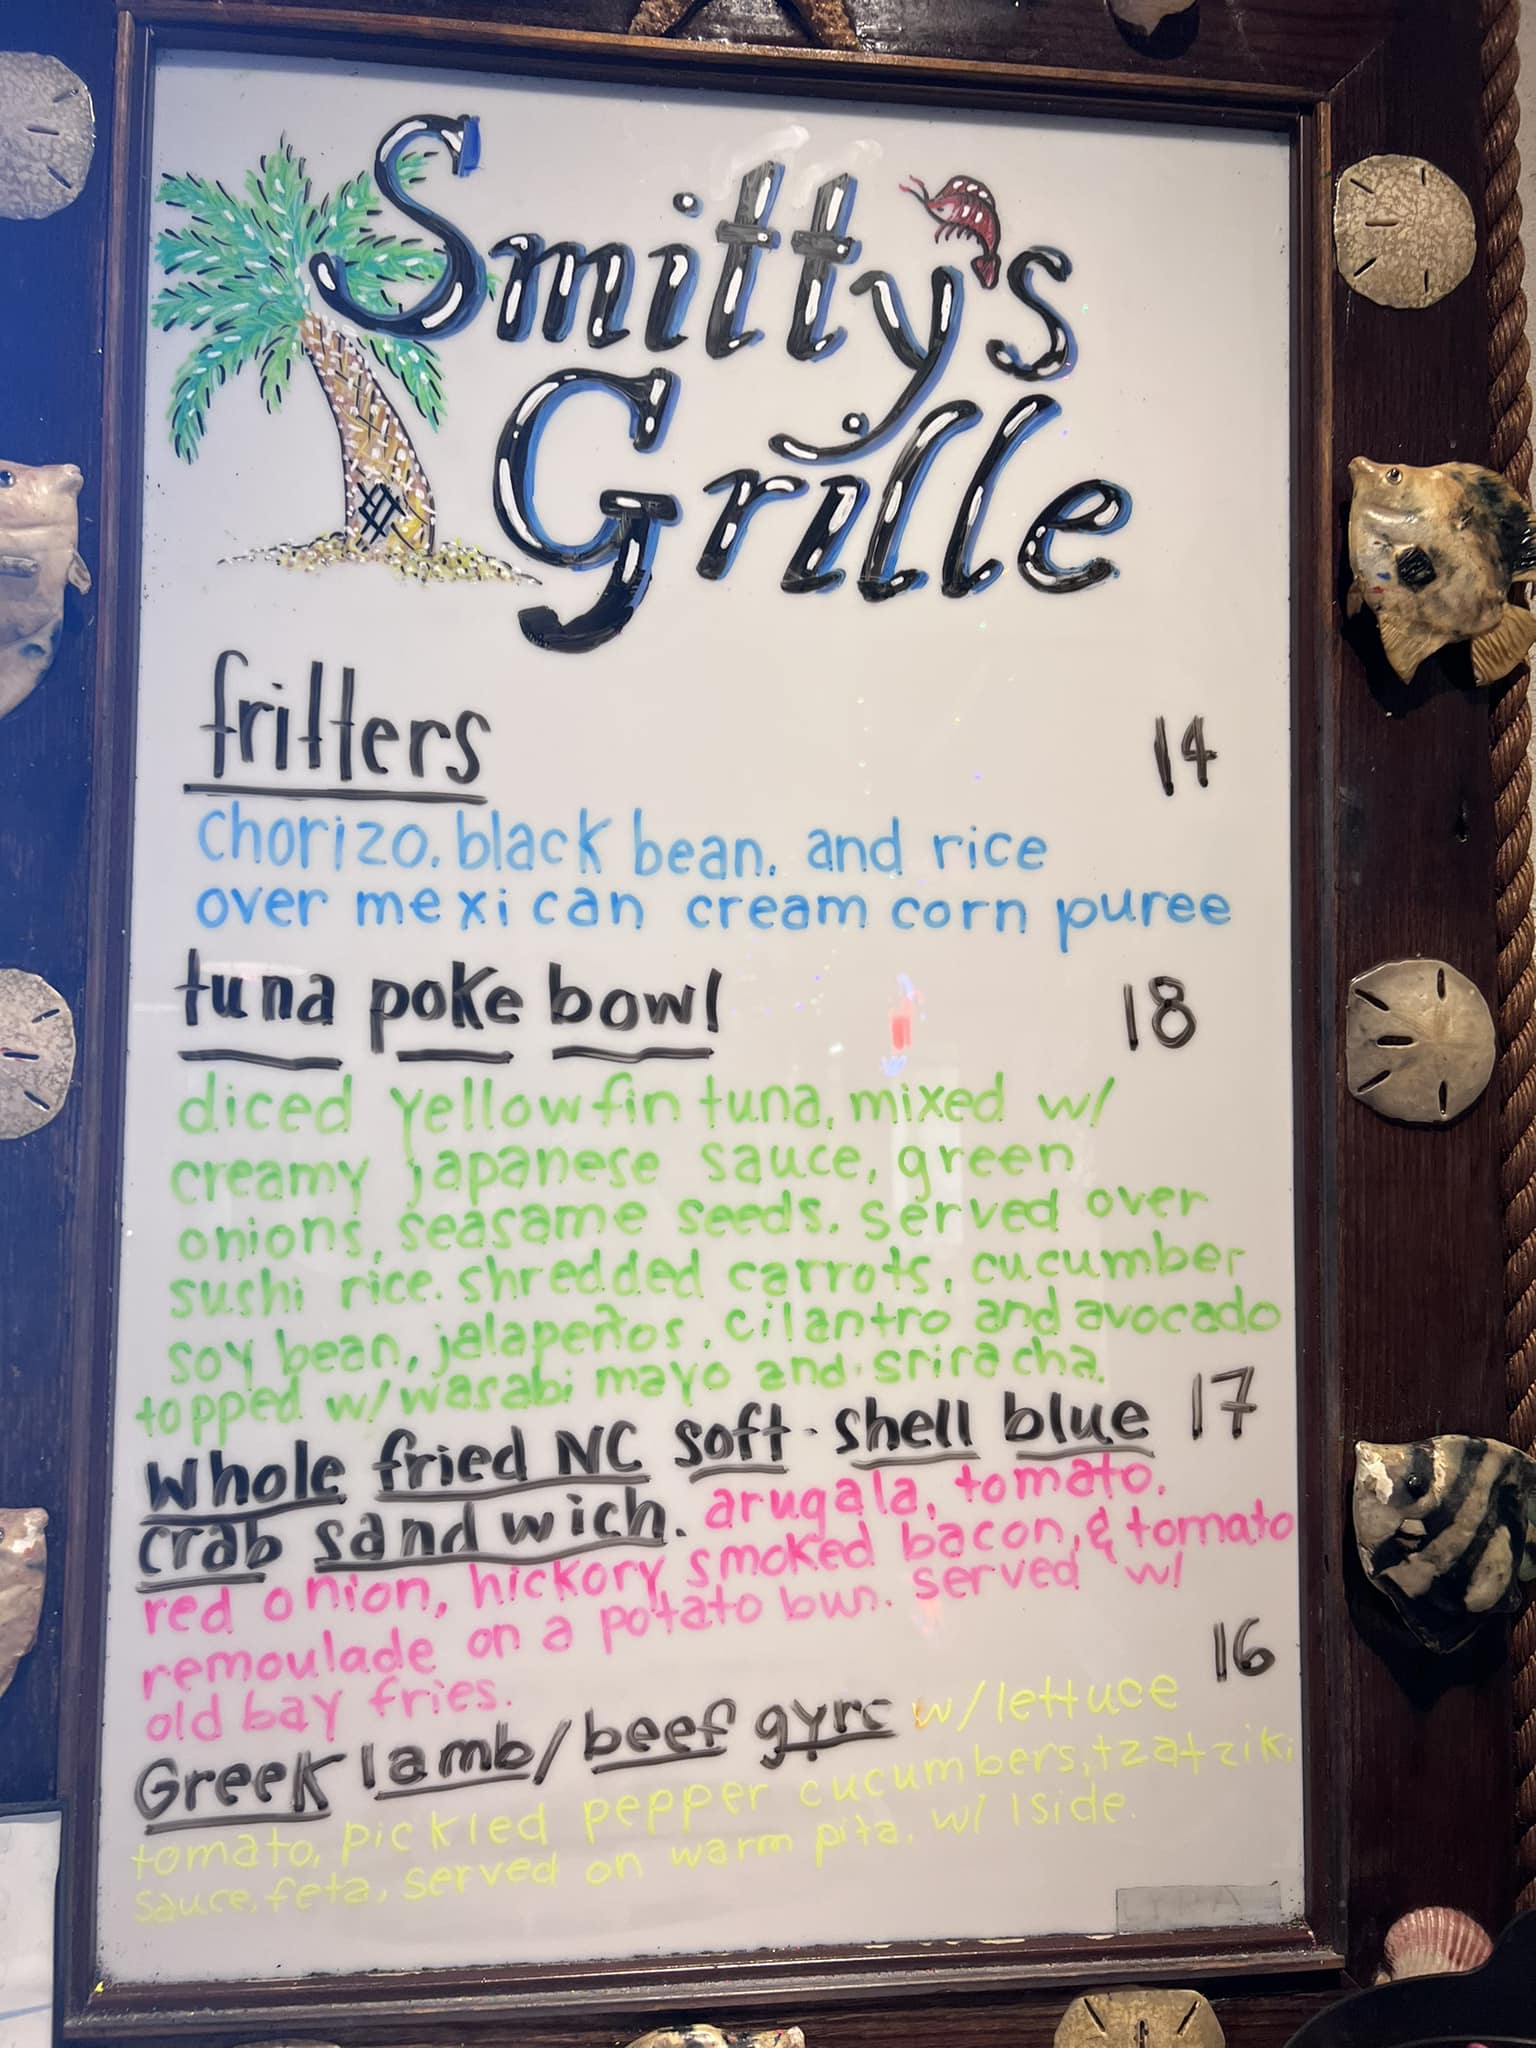 Smitty's
Grille
fritters 14
chorizo, black bean, and rice
over mexican cream corn puree
tuna poke bowl 18
diced yellowfin tuna, mixed w/
creamy japanese sauce, green
onions, seasame seeds. served over
sushi rice. shredded carrots, cucumber
soy bean, jalapeños, cilantro and avocado
topped w/ wasabi mayo and sriracha.
Whole fried NC soft-shell blue 17
crab sandwich. arugala, tomato,
red onion, hickory smoked bacon, & tomato
remoulade on a potato bun. served w/
old bay fries.
16
Greek lamb/beef gyro w/lettuce
tomato, pickled pepper cucumbers, tzatziki
sauce, feta, served on warm pita. w/ 1side.